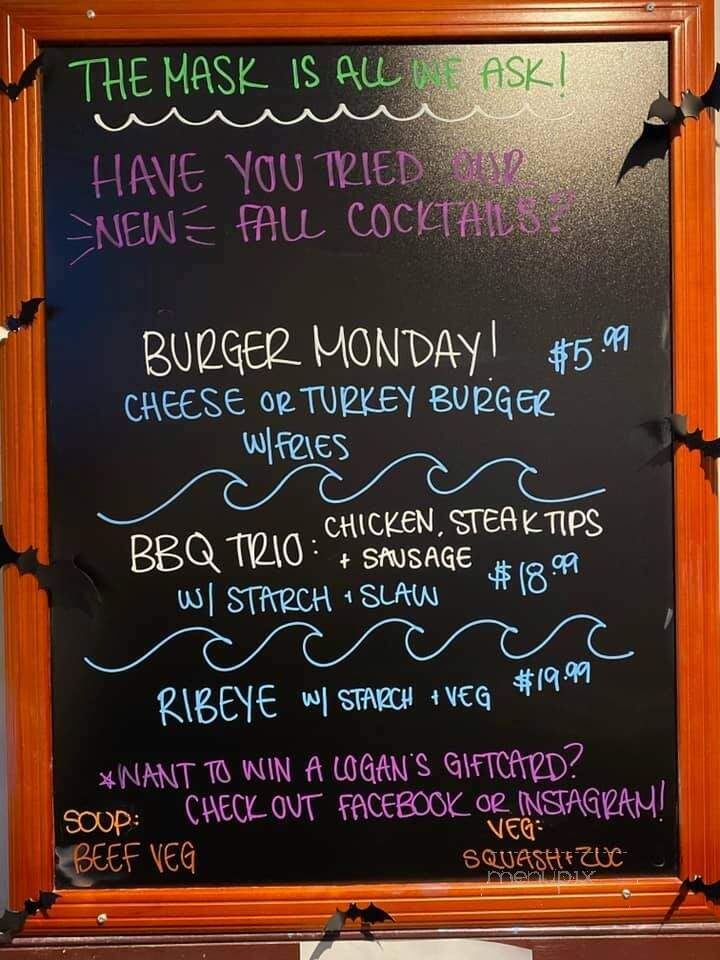 THE MASK IS ALL WE ASK!
HAVE YOU TRIED OUR
NEW FALL COCKTAILS?
BURGER MONDAY! $5.99
CHEESE OR TURKEY BURGER
W/FRIES
BBQ TRIO: CHICKEN, STEAK TIPS
+ SAUSAGE
W/ STARCH + SLAW $18.99
RIBEYE W/ STARCH + VEG $19.99
*WANT TO WIN A LOGAN'S GIFTCARD?
CHECK OUT FACEBOOK OR INSTAGRAM!
SOUP:
BEEF VEG
VEG:
SQUASH + ZUC
menupix